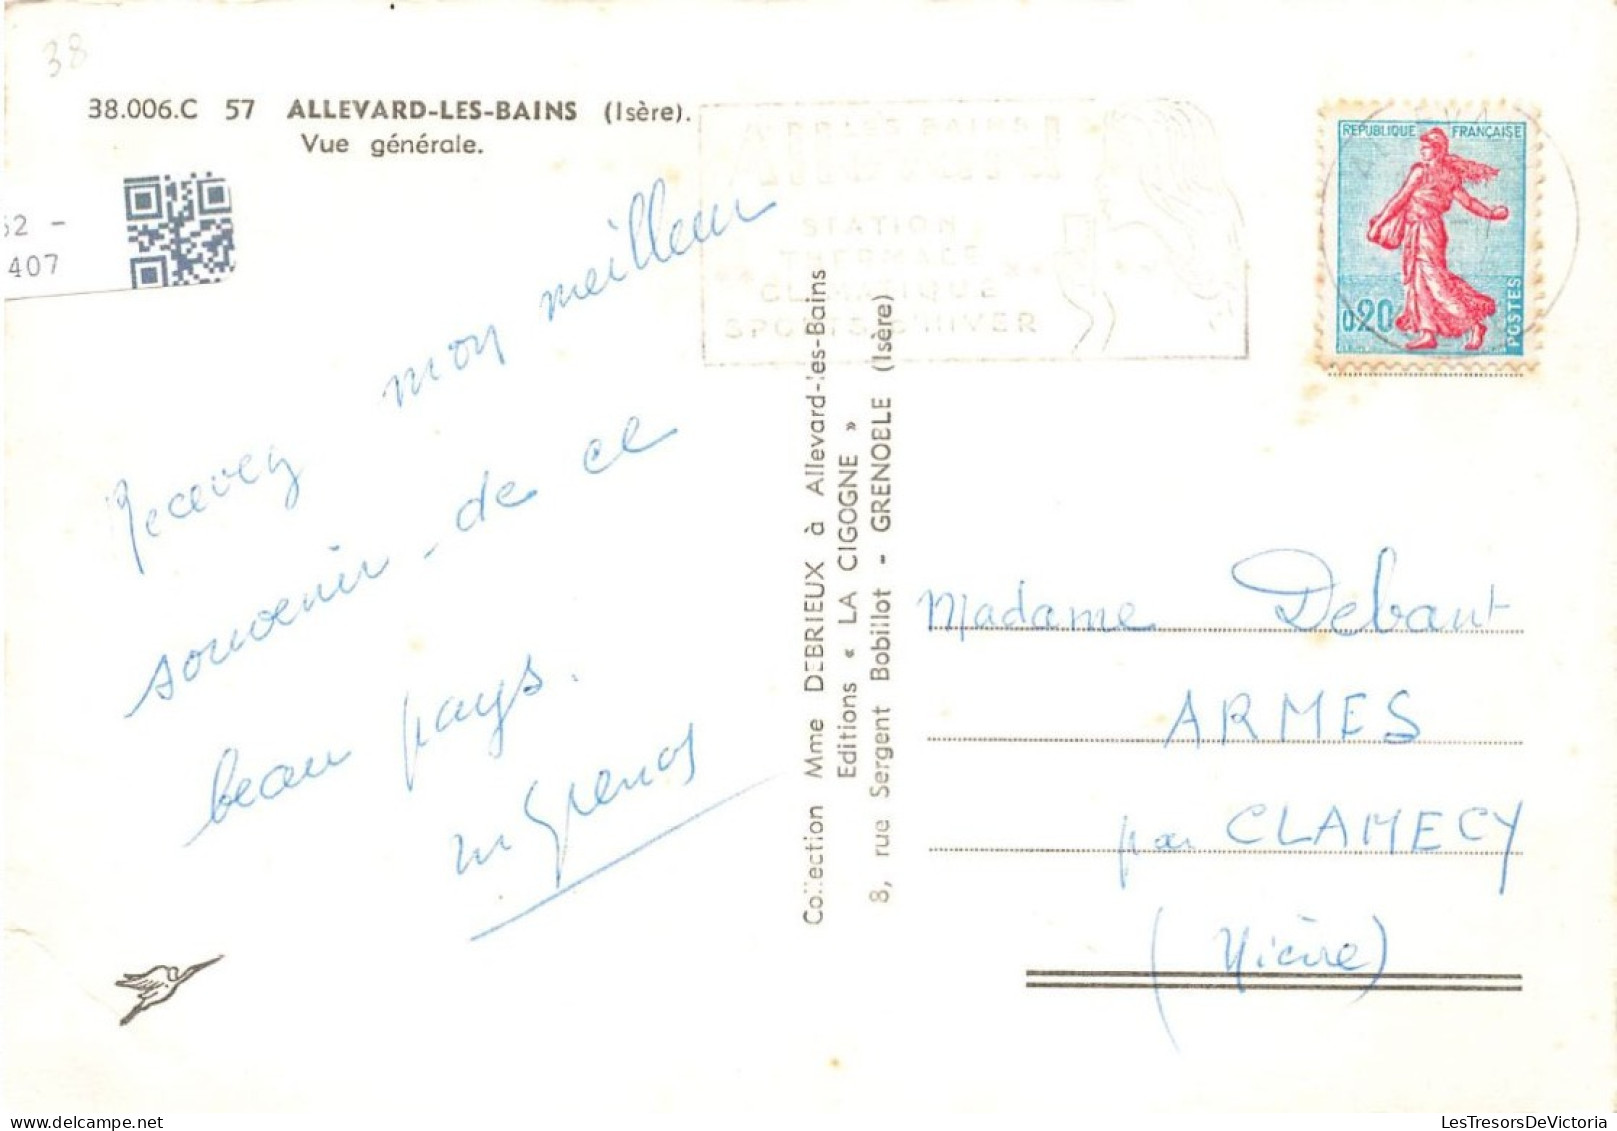 38
38.006.C 57 ALLEVARD-LES-BAINS (Isère).
Vue générale.
52 -
407
Recevez mon meilleur
souvenir de ce
beau pays.
STATION
THERMALE
CLIMATIQUE
SPORTS D'HIVER
REPUBLIQUE FRANÇAISE
0,20
POSTES
Collection Mme DEBRIEUX à Allevard-les-Bains
Editions « LA CIGOGNE »
8, rue Sergent Bobillot - GRENOBLE (Isère)
Madame Debaut
ARMES
par CLAMECY
(Nièvre)
LesTresorsDeVictoria